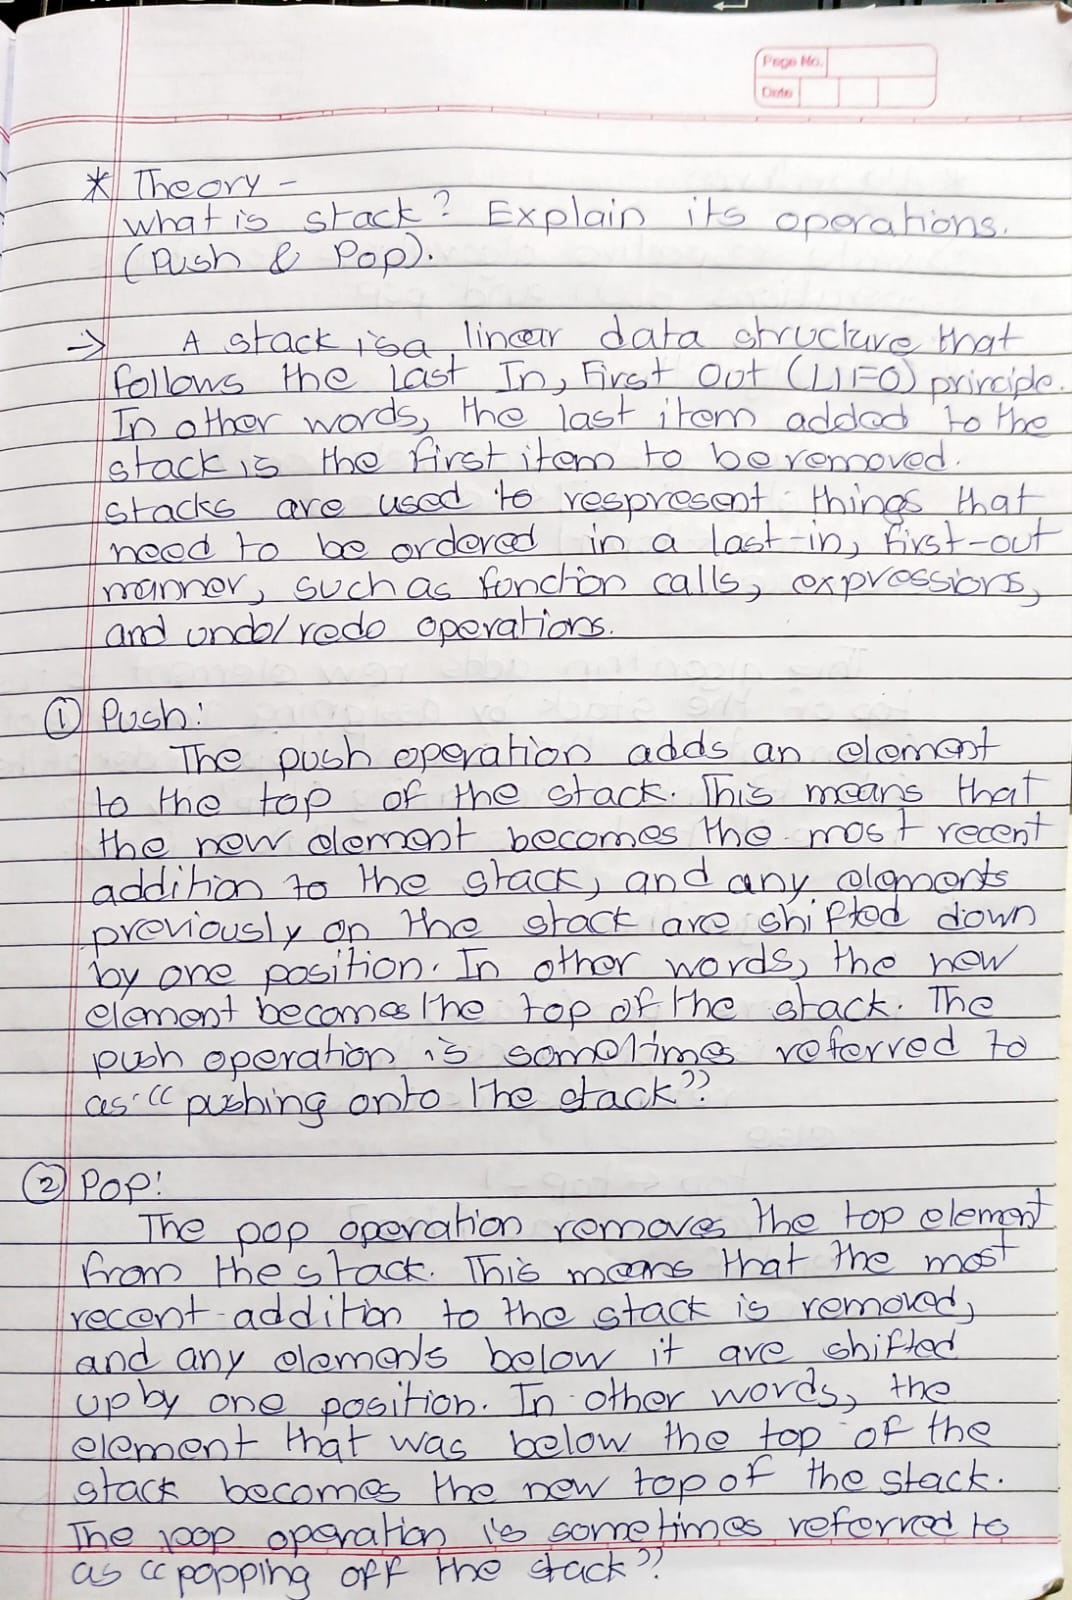 Page No.
Date
* Theory -
what is stack? Explain its operations.
(Push & Pop).
→ A stack is a linear data structure that
follows the Last In, First Out (LIFO) principle.
In other words, the last item added to the
stack is the first item to be removed.
stacks are used to respresent things that
need to be ordered in a last-in, first-out
manner, such as function calls, expressions,
and undo/redo operations.
① Push:
The push operation adds an element
to the top of the stack. This means that
the new element becomes the most recent
addition to the stack, and any elements
previously on the stack are shifted down
by one position. In other words, the new
element becomes the top of the stack. The
push operation is sometimes referred to
as "pushing onto the stack".
② Pop:
The pop operation removes the top element
from the stack. This means that the most
recent addition to the stack is removed,
and any elements below it are shifted
up by one position. In other words, the
element that was below the top of the
stack becomes the new top of the stack.
The pop operation is sometimes referred to
as "popping off the stack".